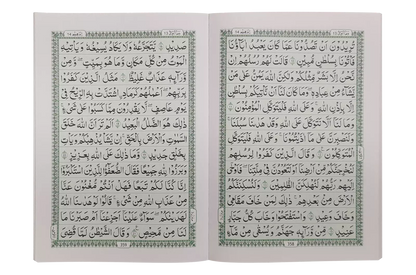 تُرِيدُونَ اَنْ تَصُدُّوْنَا عَمَّا كَانَ يَعْبُدُ اٰبَآؤُنَا
فَاْتُوْنَا بِسُلْطٰنٍ مُّبِيْنٍ قَالَتْ لَهُمْ رُسُلُهُمْ اِنْ
نَّحْنُ اِلَّا بَشَرٌ مِّثْلُكُمْ وَلٰكِنَّ اللّٰهَ يَمُنُّ عَلٰى مَنْ
يَّشَآءُ مِنْ عِبَادِهٖ وَمَا كَانَ لَنَآ اَنْ نَّاْتِيَكُمْ بِسُلْطٰنٍ
اِلَّا بِاِذْنِ اللّٰهِ وَعَلَى اللّٰهِ فَلْيَتَوَكَّلِ الْمُؤْمِنُوْنَ
وَمَا لَنَآ اَلَّا نَتَوَكَّلَ عَلَى اللّٰهِ وَقَدْ هَدٰىنَا سُبُلَنَا
وَلَنَصْبِرَنَّ عَلٰى مَآ اٰذَيْتُمُوْنَا وَعَلَى اللّٰهِ فَلْيَتَوَكَّلِ
الْمُتَوَكِّلُوْنَ وَقَالَ الَّذِيْنَ كَفَرُوْا لِرُسُلِهِمْ
لَنُخْرِجَنَّكُمْ مِّنْ اَرْضِنَآ اَوْ لَتَعُوْدُنَّ فِيْ مِلَّتِنَا فَاَوْحٰٓى
اِلَيْهِمْ رَبُّهُمْ لَنُهْلِكَنَّ الظّٰلِمِيْنَ وَلَنُسْكِنَنَّكُمُ
الْاَرْضَ مِنْ بَعْدِهِمْ ذٰلِكَ لِمَنْ خَافَ مَقَامِيْ
وَخَافَ وَعِيْدِ وَاسْتَفْتَحُوْا وَخَابَ كُلُّ جَبَّارٍ
عَنِيْدٍ مِّنْ وَّرَآئِهٖ جَهَنَّمُ وَيُسْقٰى مِنْ مَّآءٍ
صَدِيْدٍ يَّتَجَرَّعُهٗ وَلَا يَكَادُ يُسِيْغُهٗ وَيَاْتِيْهِ
الْمَوْتُ مِنْ كُلِّ مَكَانٍ وَّمَا هُوَ بِمَيِّتٍ وَمِنْ
وَّرَآئِهٖ عَذَابٌ غَلِيْظٌ مَثَلُ الَّذِيْنَ كَفَرُوْا
بِرَبِّهِمْ اَعْمَالُهُمْ كَرَمَادِ اشْتَدَّتْ بِهِ الرِّيْحُ فِيْ
يَوْمٍ عَاصِفٍ لَا يَقْدِرُوْنَ مِمَّا كَسَبُوْا عَلٰى شَيْءٍ
ذٰلِكَ هُوَ الضَّلٰلُ الْبَعِيْدُ اَلَمْ تَرَ اَنَّ اللّٰهَ خَلَقَ
السَّمٰوٰتِ وَالْاَرْضَ بِالْحَقِّ اِنْ يَّشَاْ يُذْهِبْكُمْ وَيَاْتِ
بِخَلْقٍ جَدِيْدٍ وَمَا ذٰلِكَ عَلَى اللّٰهِ بِعَزِيْزٍ
وَبَرَزُوْا لِلّٰهِ جَمِيْعًا فَقَالَ الضُّعَفٰٓؤُا لِلَّذِيْنَ اسْتَكْبَرُوْٓا
اِنَّا كُنَّا لَكُمْ تَبَعًا فَهَلْ اَنْتُمْ مُّغْنُوْنَ عَنَّا
مِنْ عَذَابِ اللّٰهِ مِنْ شَيْءٍ قَالُوْا لَوْ هَدٰىنَا اللّٰهُ
لَهَدَيْنٰكُمْ سَوَآءٌ عَلَيْنَآ اَجَزِعْنَآ اَمْ صَبَرْنَا مَا
لَنَا مِنْ مَّحِيْصٍ وَقَالَ الشَّيْطٰنُ لَمَّا قُضِيَ